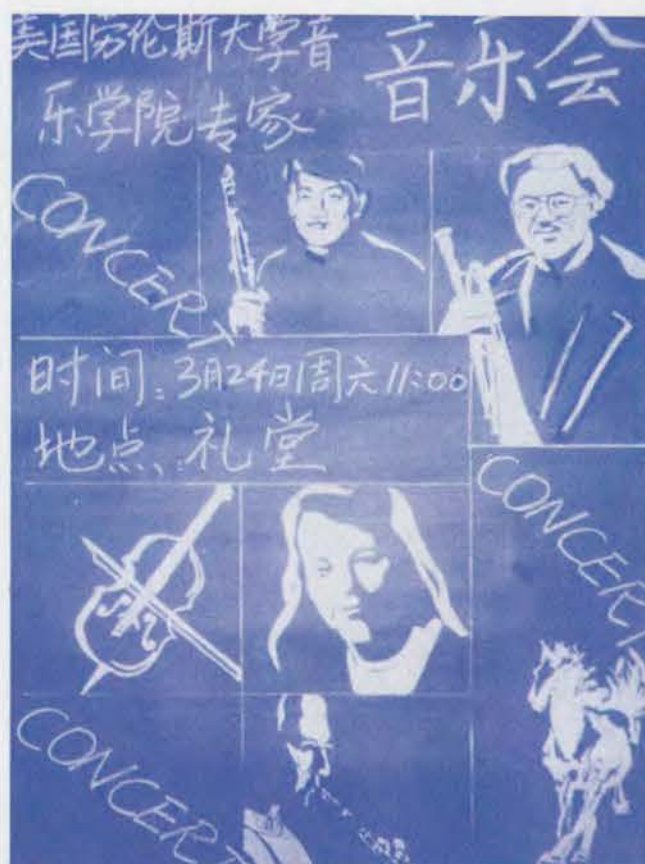 美国劳伦斯大学音
乐学院专家
音乐会
CONCERT
时间:3月24日周六11:00
地点:礼堂
CONCERT
CONCERT